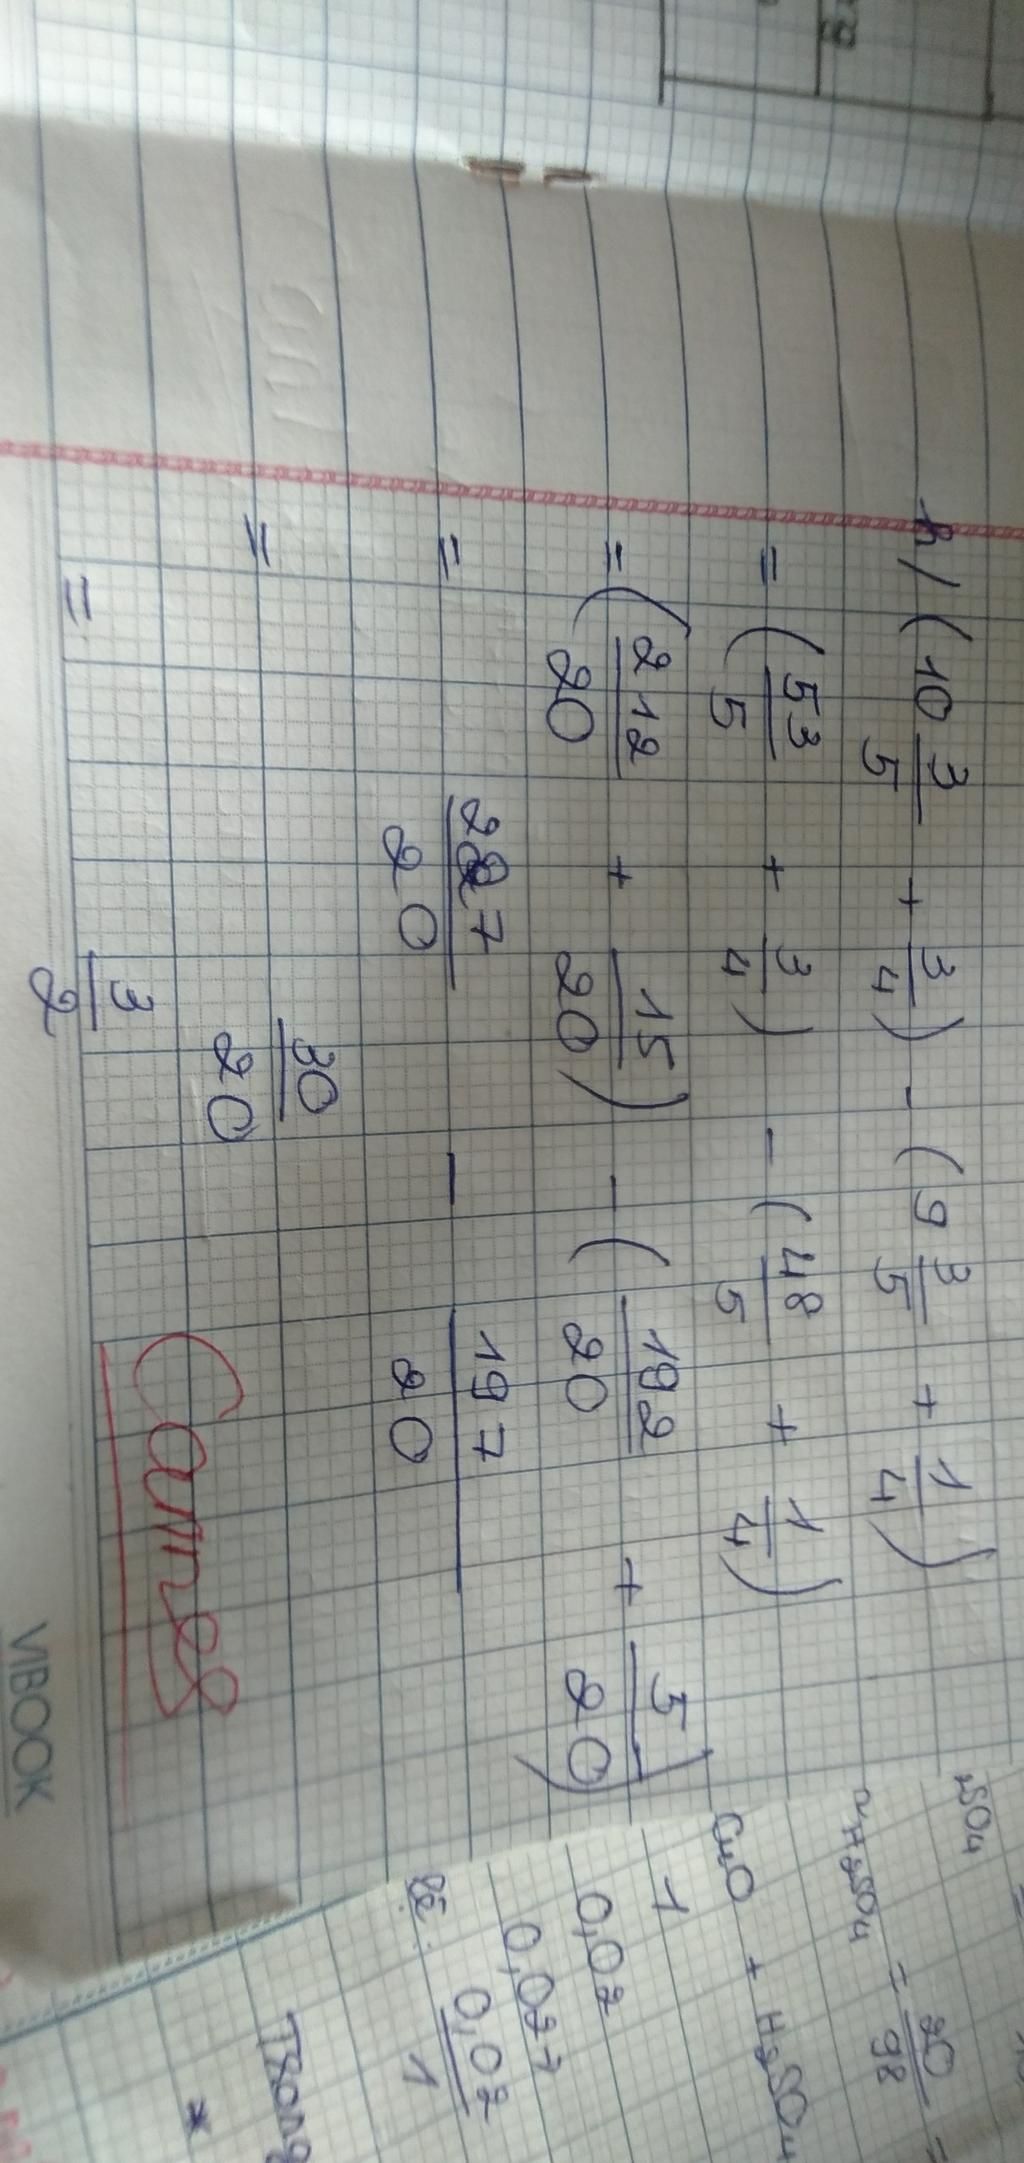 h/ (10 3/5 + 3/4) - (9 3/5 + 1/4)
= (53/5 + 3/4) - (48/5 + 1/4)
= (212/20 + 15/20) - (192/20 + 5/20)
= 227/20 - 197/20
= 30/20
= 3/2
VIBOOK
2SO4
nH2SO4 = 20/98 =
CuO + H2SO4
1
0,02
0,02 7
0,02/1
Trong
*